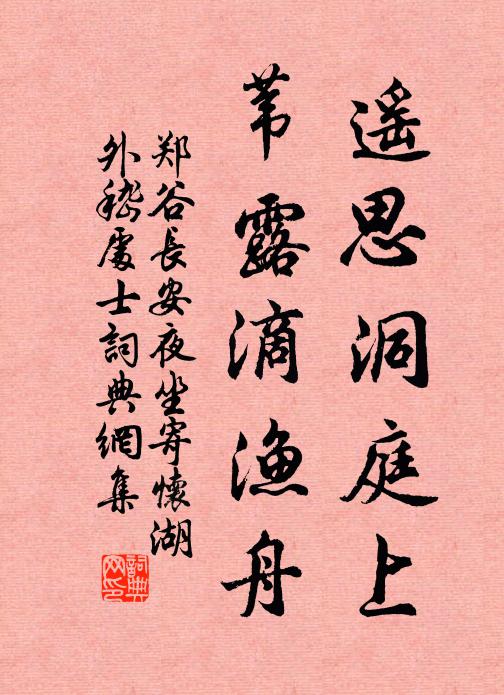 遥思洞庭上
苇露滴渔舟
郑谷長安夜坐寄懷湖
外嵇處士詞典網集
詞典
网印